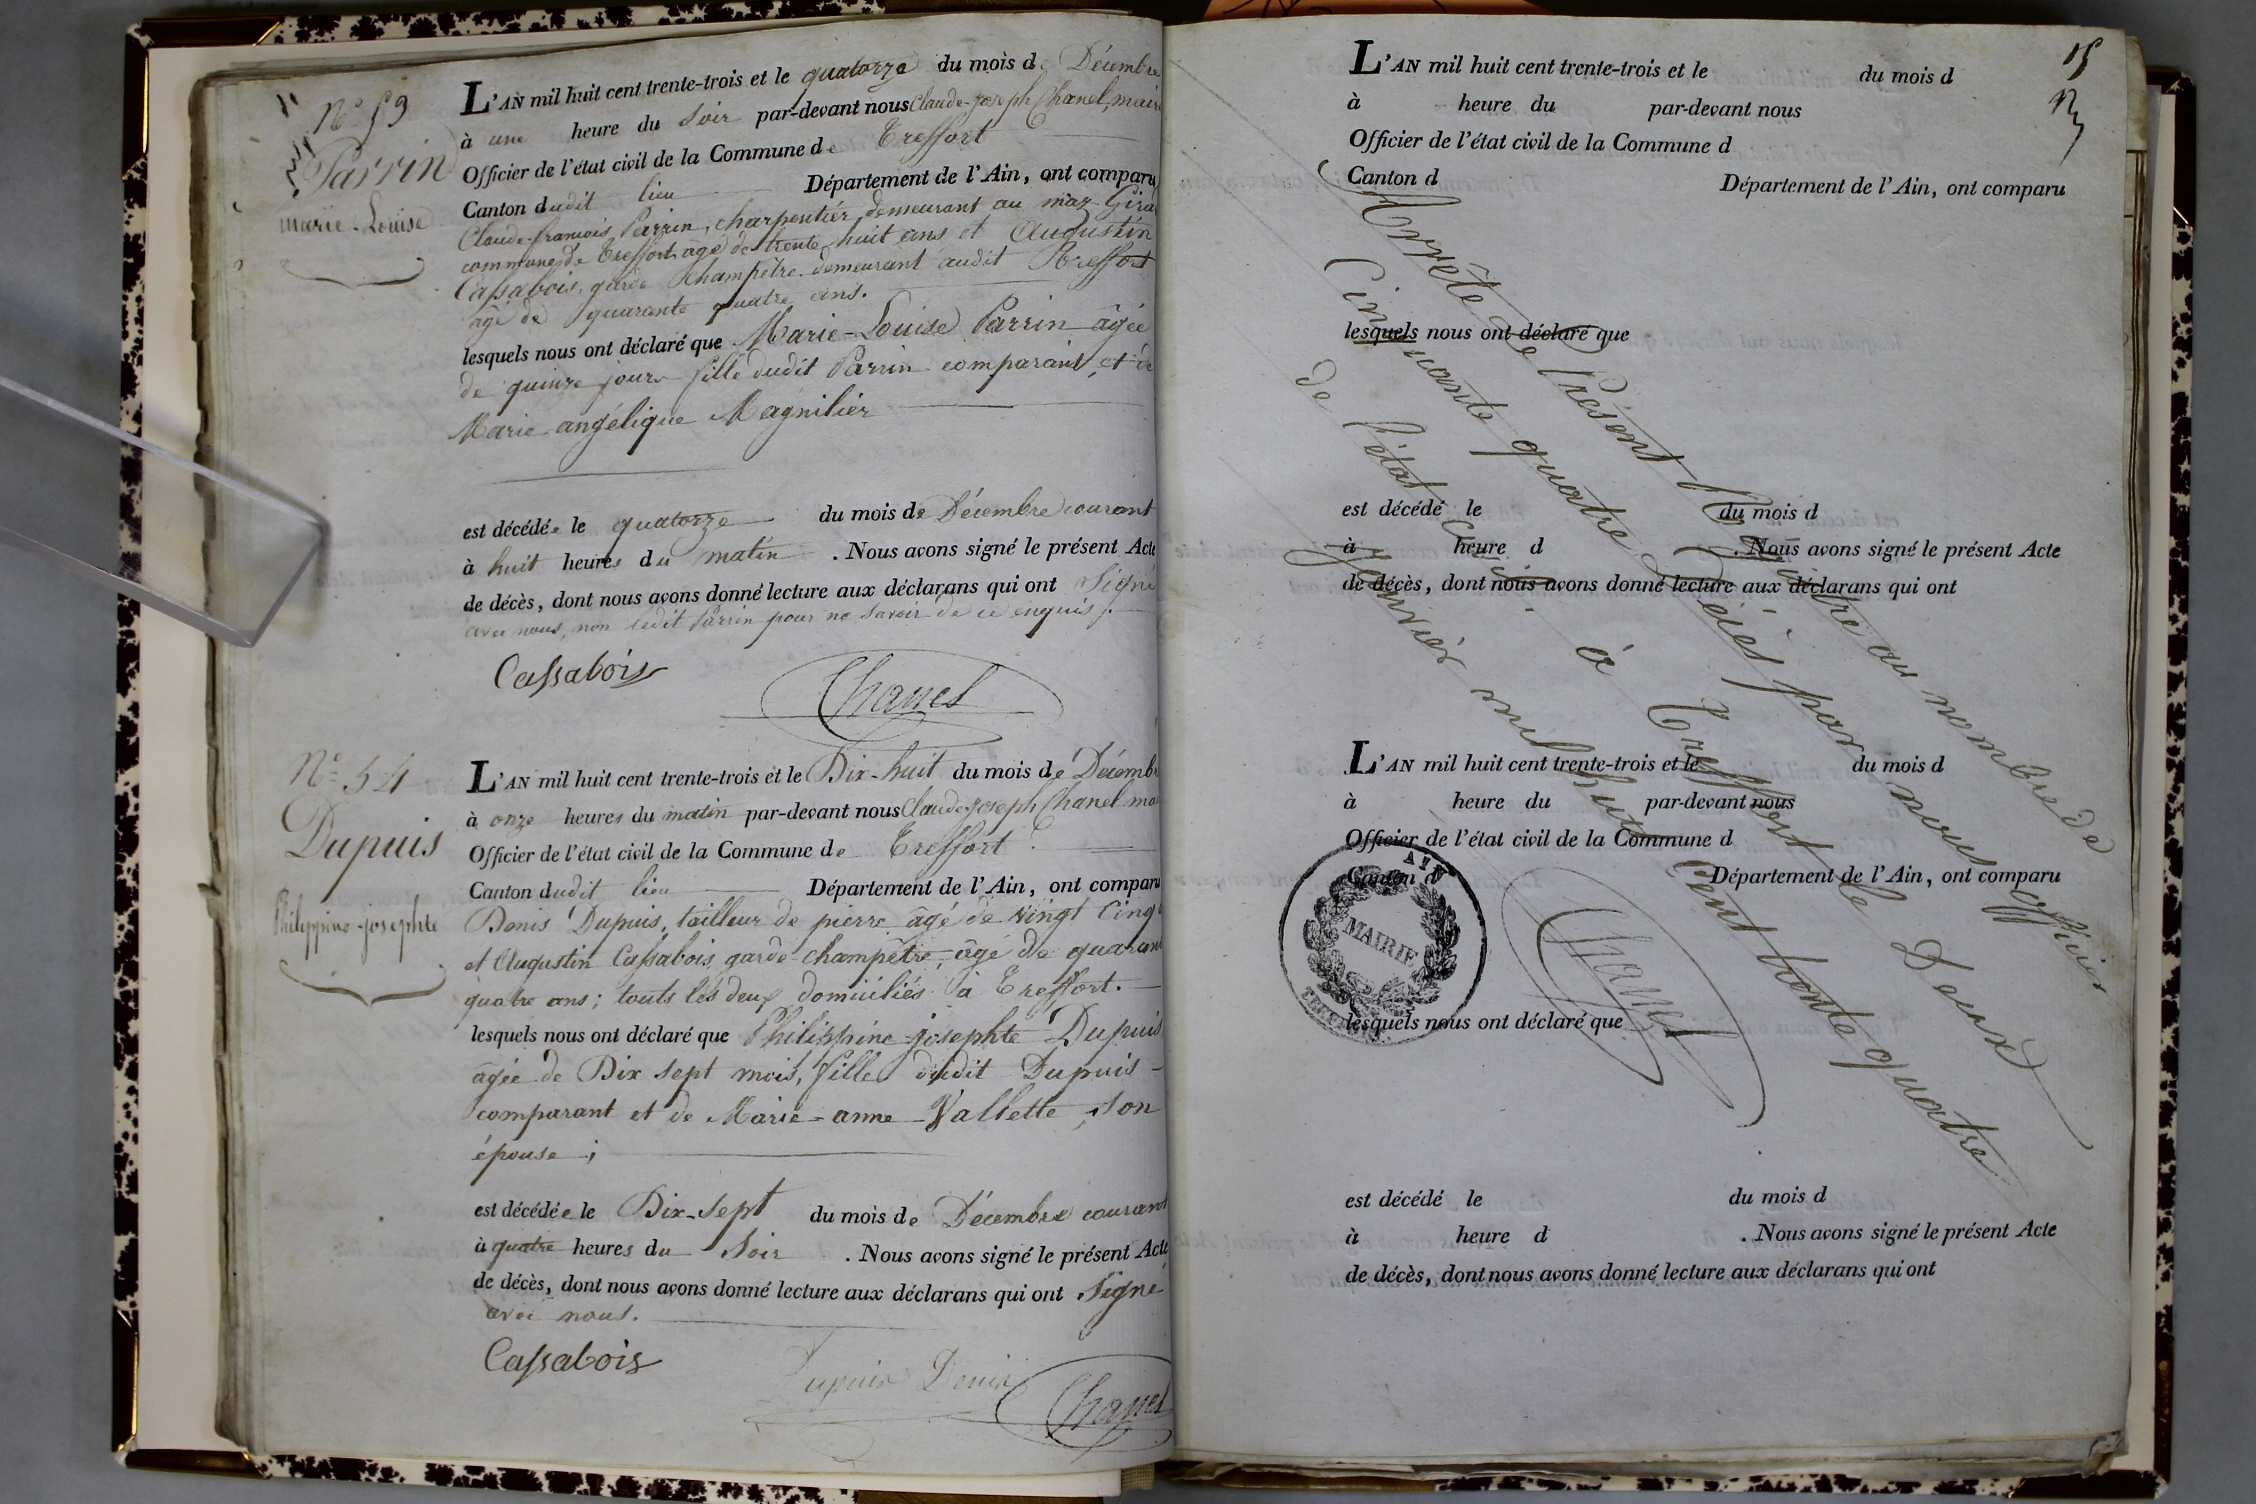 N.º 53
Parrin
marie-Louise
L'AN mil huit cent trente-trois et le quatorze du mois de Décembre
à une heure du Soir par-devant nous Claude-joseph Chanel, maire
Officier de l'état civil de la Commune de Treffort
Canton dudit lieu Département de l'Ain, ont comparu
Claude-françois Parrin, charpentier, demeurant au maz Gira
commune de Treffort, âgé de trente huit ans et Augustin
Cassabois, garde champêtre demeurant audit Treffort
âgé de quarante quatre ans.
lesquels nous ont déclaré que Marie-Louise Parrin âgée
de quinze jours fille dudit Parrin comparant, et de
Marie angélique Magnilier
est décédée le quatorze du mois de Décembre courant
à huit heures du matin . Nous avons signé le présent Acte
de décès, dont nous avons donné lecture aux déclarans qui ont Signé
avec nous, non ledit Parrin pour ne savoir de ce enquis.
Cassabois
Chanel
N.º 54
Dupuis
Philippine-josephte
L'AN mil huit cent trente-trois et le Dix-huit du mois de Décemb
à onze heures du matin par-devant nous Claude-joseph Chanel ma
Officier de l'état civil de la Commune de Treffort
Canton dudit lieu Département de l'Ain, ont comparu
Denis Dupuis, tailleur de pierre âgé de vingt Cinq
et Augustin Cassabois garde-champêtre, âgé de quaran
quatre ans; touts les deux domiciliés à Treffort.
lesquels nous ont déclaré que Philippine-josephte Dupuis
âgée de Dix sept mois, fille dudit Dupuis
comparant et de Marie-anne Vallette, son
épouse;
est décédée le Dix-sept du mois de Décembre courant
à quatre heures du Soir . Nous avons signé le présent Acte
de décès, dont nous avons donné lecture aux déclarans qui ont Signé
avec nous.
Cassabois
Dupuis Denis
Chanel
15
L'AN mil huit cent trente-trois et le du mois d
à heure du par-devant nous
Officier de l'état civil de la Commune d
Canton d Département de l'Ain, ont comparu
lesquels nous ont déclaré que
est décédé le du mois d
à heure d . Nous avons signé le présent Acte
de décès, dont nous avons donné lecture aux déclarans qui ont
Arrêté le Présent Registre au nombre de
Cinquante quatre Décés par nous officier
de l'état civil à Treffort le Deux
Janvier mil huit Cent trente quatre
Chanel
L'AN mil huit cent trente-trois et le du mois d
à heure du par-devant nous
Officier de l'état civil de la Commune d
Canton d Département de l'Ain, ont comparu
AIN
MAIRIE
lesquels nous ont déclaré que
est décédé le du mois d
à heure d . Nous avons signé le présent Acte
de décès, dont nous avons donné lecture aux déclarans qui ont